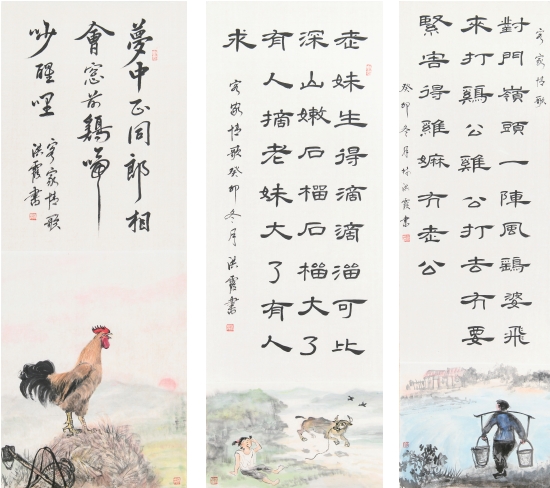 客家情歌
對門嶺頭一陣風鷄婆飛
來打鷄公雞公打去冇要
緊害得雞嫲冇老公
癸卯冬月洪霞書
老妹生得滴滴溜可比
深山嫩石榴石榴大了
有人摘老妹大了有人
求
客家情歌癸卯冬月洪霞書
夢中正同郎相
會窓前鷄啼
吵醒哩
客家情歌
洪霞書